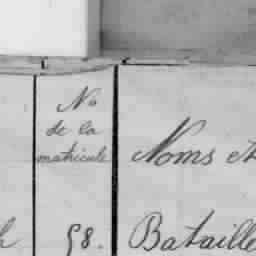 No
de la
matricule
Noms et
58. Bataille